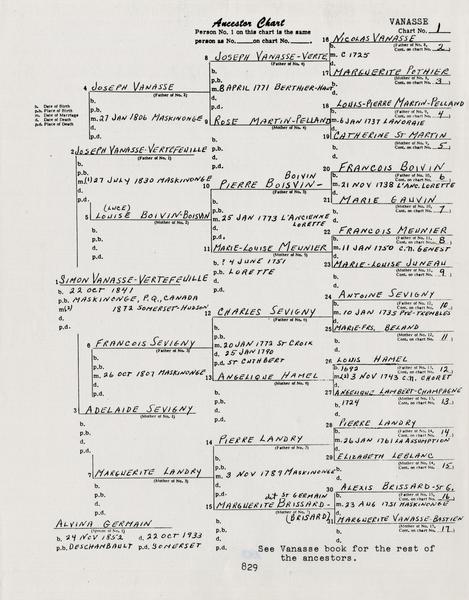 Ancestor Chart
VANASSE
Person No. 1 on this chart is the same
person as No. on chart No.
Chart No. 1
b. Date of Birth
p.b. Place of Birth
m. Date of Marriage
d. Date of Death
p.d. Place of Death
1 SIMON VANASSE-VERTEFEUILLE
b. 22 OCT 1841
p.b. MASKINONGE, P.Q., CANADA
m(2) 1872 SOMERSET-HUDSON
d.
p.d.
ALVINA GERMAIN
(Spouse of No. 1)
b. 29 NOV 1852 d. 22 OCT 1933
p.b. DESCHAMBAULT p.d. SOMERSET
2 JOSEPH VANASSE-VERTEFEUILLE
(Father of No. 1)
b.
p.b.
m(1) 27 JULY 1830 MASKINONGE
d.
p.d.
3 ADELAIDE SEVIGNY
(Mother of No. 1)
b.
p.b.
d.
p.d.
4 JOSEPH VANASSE
(Father of No. 2)
b.
p.b.
m. 27 JAN 1806 MASKINONGE
d.
p.d.
(LUCE)
5 LOUISE BOIVIN-BOISVAN
(Mother of No. 2)
b.
p.b.
d.
p.d.
6 FRANCOIS SEVIGNY
(Father of No. 3)
b.
p.b.
m. 26 OCT 1807 MASKINONGE
d.
p.d.
7 MARGUERITE LANDRY
(Mother of No. 3)
b.
p.b.
d.
p.d.
8 JOSEPH VANASSE-VERTE
(Father of No. 4)
b.
p.b.
m. 8 APRIL 1771 BERTHIER-HAUT
d.
p.d.
9 ROSE MARTIN-PELLAND
(Mother of No. 4)
b.
p.b.
d.
p.d.
BOIVIN
10 PIERRE BOISVIN-
(Father of No. 5)
b.
p.b.
m. 25 JAN 1773 L'ANCIENNE
LORETTE
d.
p.d.
11 MARIE-LOUISE MEUNIER
(Mother of No. 5)
b. ? 4 JUNE 1751
p.b. LORETTE
d.
p.d.
12 CHARLES SEVIGNY
(Father of No. 6)
b.
p.b.
m. 20 JAN 1772 ST CROIX
d. 25 JAN 1790
p.d. ST CUTHBERT
13 ANGELIQUE HAMEL
(Mother of No. 6)
b.
p.b.
d.
p.d.
14 PIERRE LANDRY
(Father of No. 7)
b.
p.b.
m. 3 NOV 1787 MASKINONGE
d.
p.d. ST GERMAIN
15 MARGUERITE BRISSARD-
(Mother of No. 7)
(BRISARD)
b.
p.b.
d.
p.d.
16 NICOLAS VANASSE
(Father of No. 8,
Cont. on chart No. 2)
m. C 1725
17 MARGUERITE POTHIER
(Mother of No. 8,
Cont. on chart No. 3)
18 LOUIS-PIERRE MARTIN-PELLAND
(Father of No. 9,
Cont. on chart No. 4)
m. 6 JAN 1737 LANORAIE
19 CATHERINE ST MARTIN
(Mother of No. 9,
Cont. on chart No. 5)
20 FRANCOIS BOIVIN
(Father of No. 10,
Cont. on chart No. 6)
m. 21 NOV 1738 L'ANC. LORETTE
21 MARIE GAUVIN
(Mother of No. 10,
Cont. on chart No. 7)
22 FRANCOIS MEUNIER
(Father of No. 11,
Cont. on chart No. 8)
m. 11 JAN 1750 C.N. GENEST
23 MARIE-LOUISE JUNEAU
(Mother of No. 11,
Cont. on chart No. 9)
24 ANTOINE SEVIGNY
(Father of No. 12,
Cont. on chart No. 10)
m. 10 JAN 1735 PTE-TREMBLES
25 MARIE-FRS. BELAND
(Mother of No. 12,
Cont. on chart No. 11)
26 LOUIS HAMEL
(Father of No. 13,
Cont. on chart No. 12)
b. 1692
m.(2) 3 NOV 1743 C.N. CHORET
27 ANGELIQUE LAMBERT-CHAMPAGNE
(Mother of No. 13,
Cont. on chart No. 13)
b. 1724
28 PIERRE LANDRY
(Father of No. 14,
Cont. on chart No. 14)
m. 26 JAN 1761 LA ASSOMPTION
29 ELIZABETH LEBLANC
(Mother of No. 14,
Cont. on chart No. 15)
30 ALEXIS BRISSARD-ST G.
(Father of No. 15,
Cont. on chart No. 16)
m. 23 AUG 1751 MASKINONGE
31 MARGUERITE VANASSE-BASTIEN
(Mother of No. 15,
Cont. on chart No. 17)
See Vanasse book for the rest of
the ancestors.
829